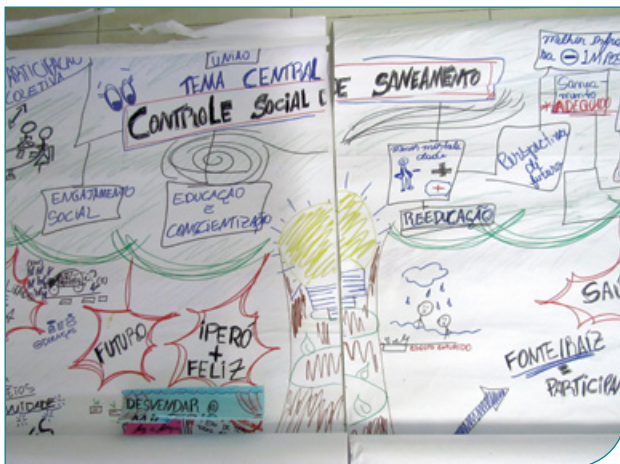 PARTICIPAÇÃO
COLETIVA
UNIÃO
TEMA CENTRAL
CONTROLE SOCIAL DE SANEAMENTO
ENGAJAMENTO
SOCIAL
EDUCAÇÃO
E
CONSCIENTIZAÇÃO
REEDUCAÇÃO
Perspectiva
de
futuro
melhor
Sanea
mento
+ ADEQUADO
FUTURO
IPERÓ
+
FELIZ
DESVENDAR @
SAÚ
FONTE/RAÍZ
=
PARTICIPA